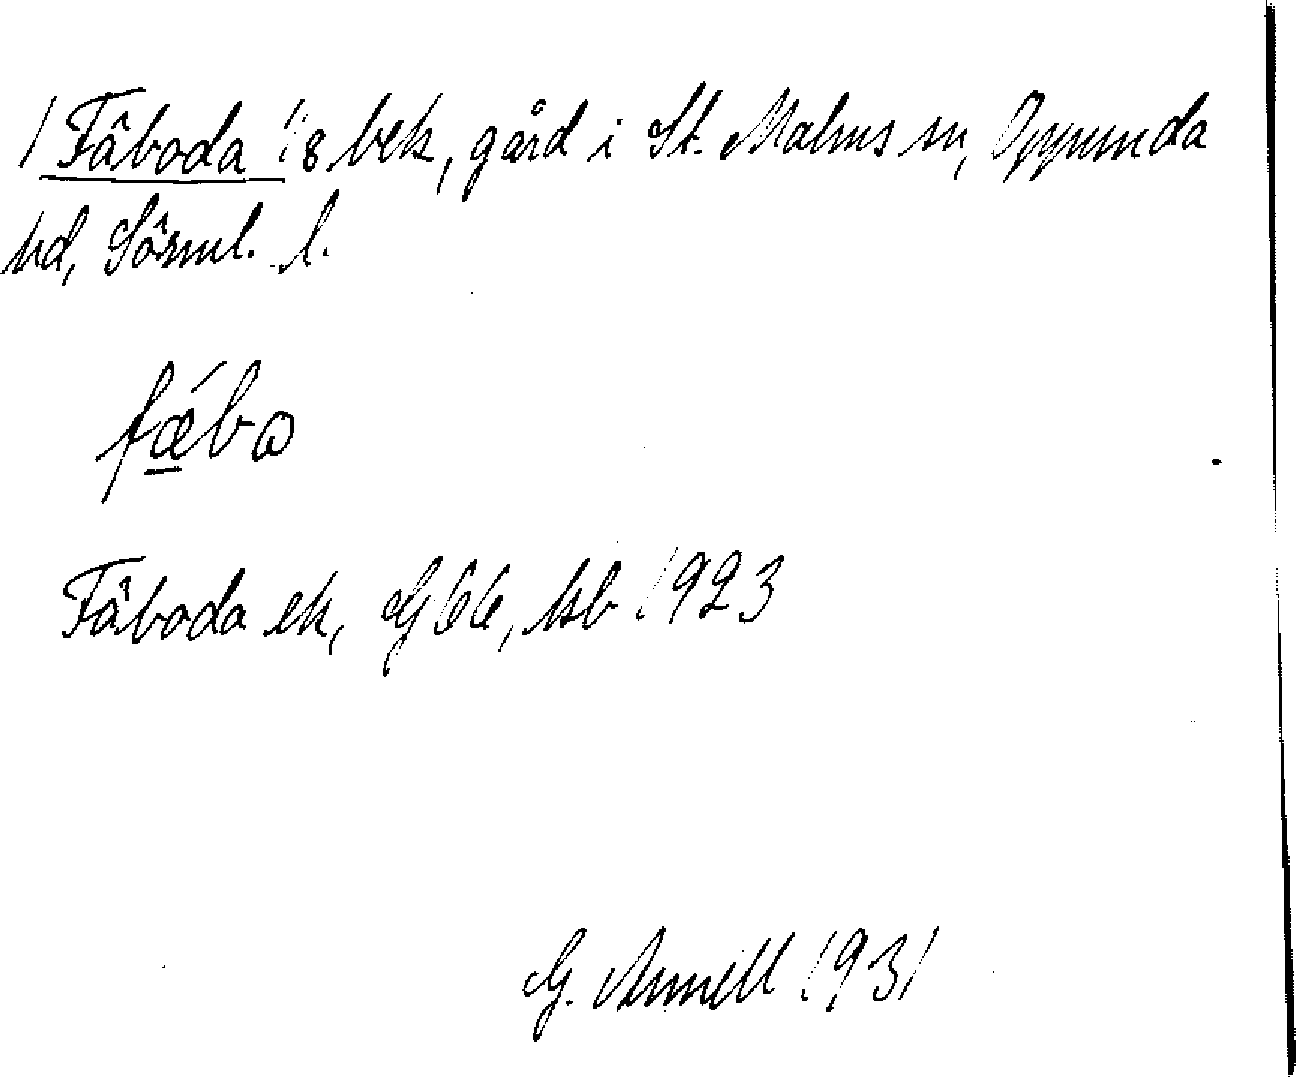 1 Fäboda 1/8 bek, gård i St. Malms sn, Oppunda
hd, Sörml. l.
fǽbɷ
Fäboda ek, G 66, ksb 1923
G. Annell 1931